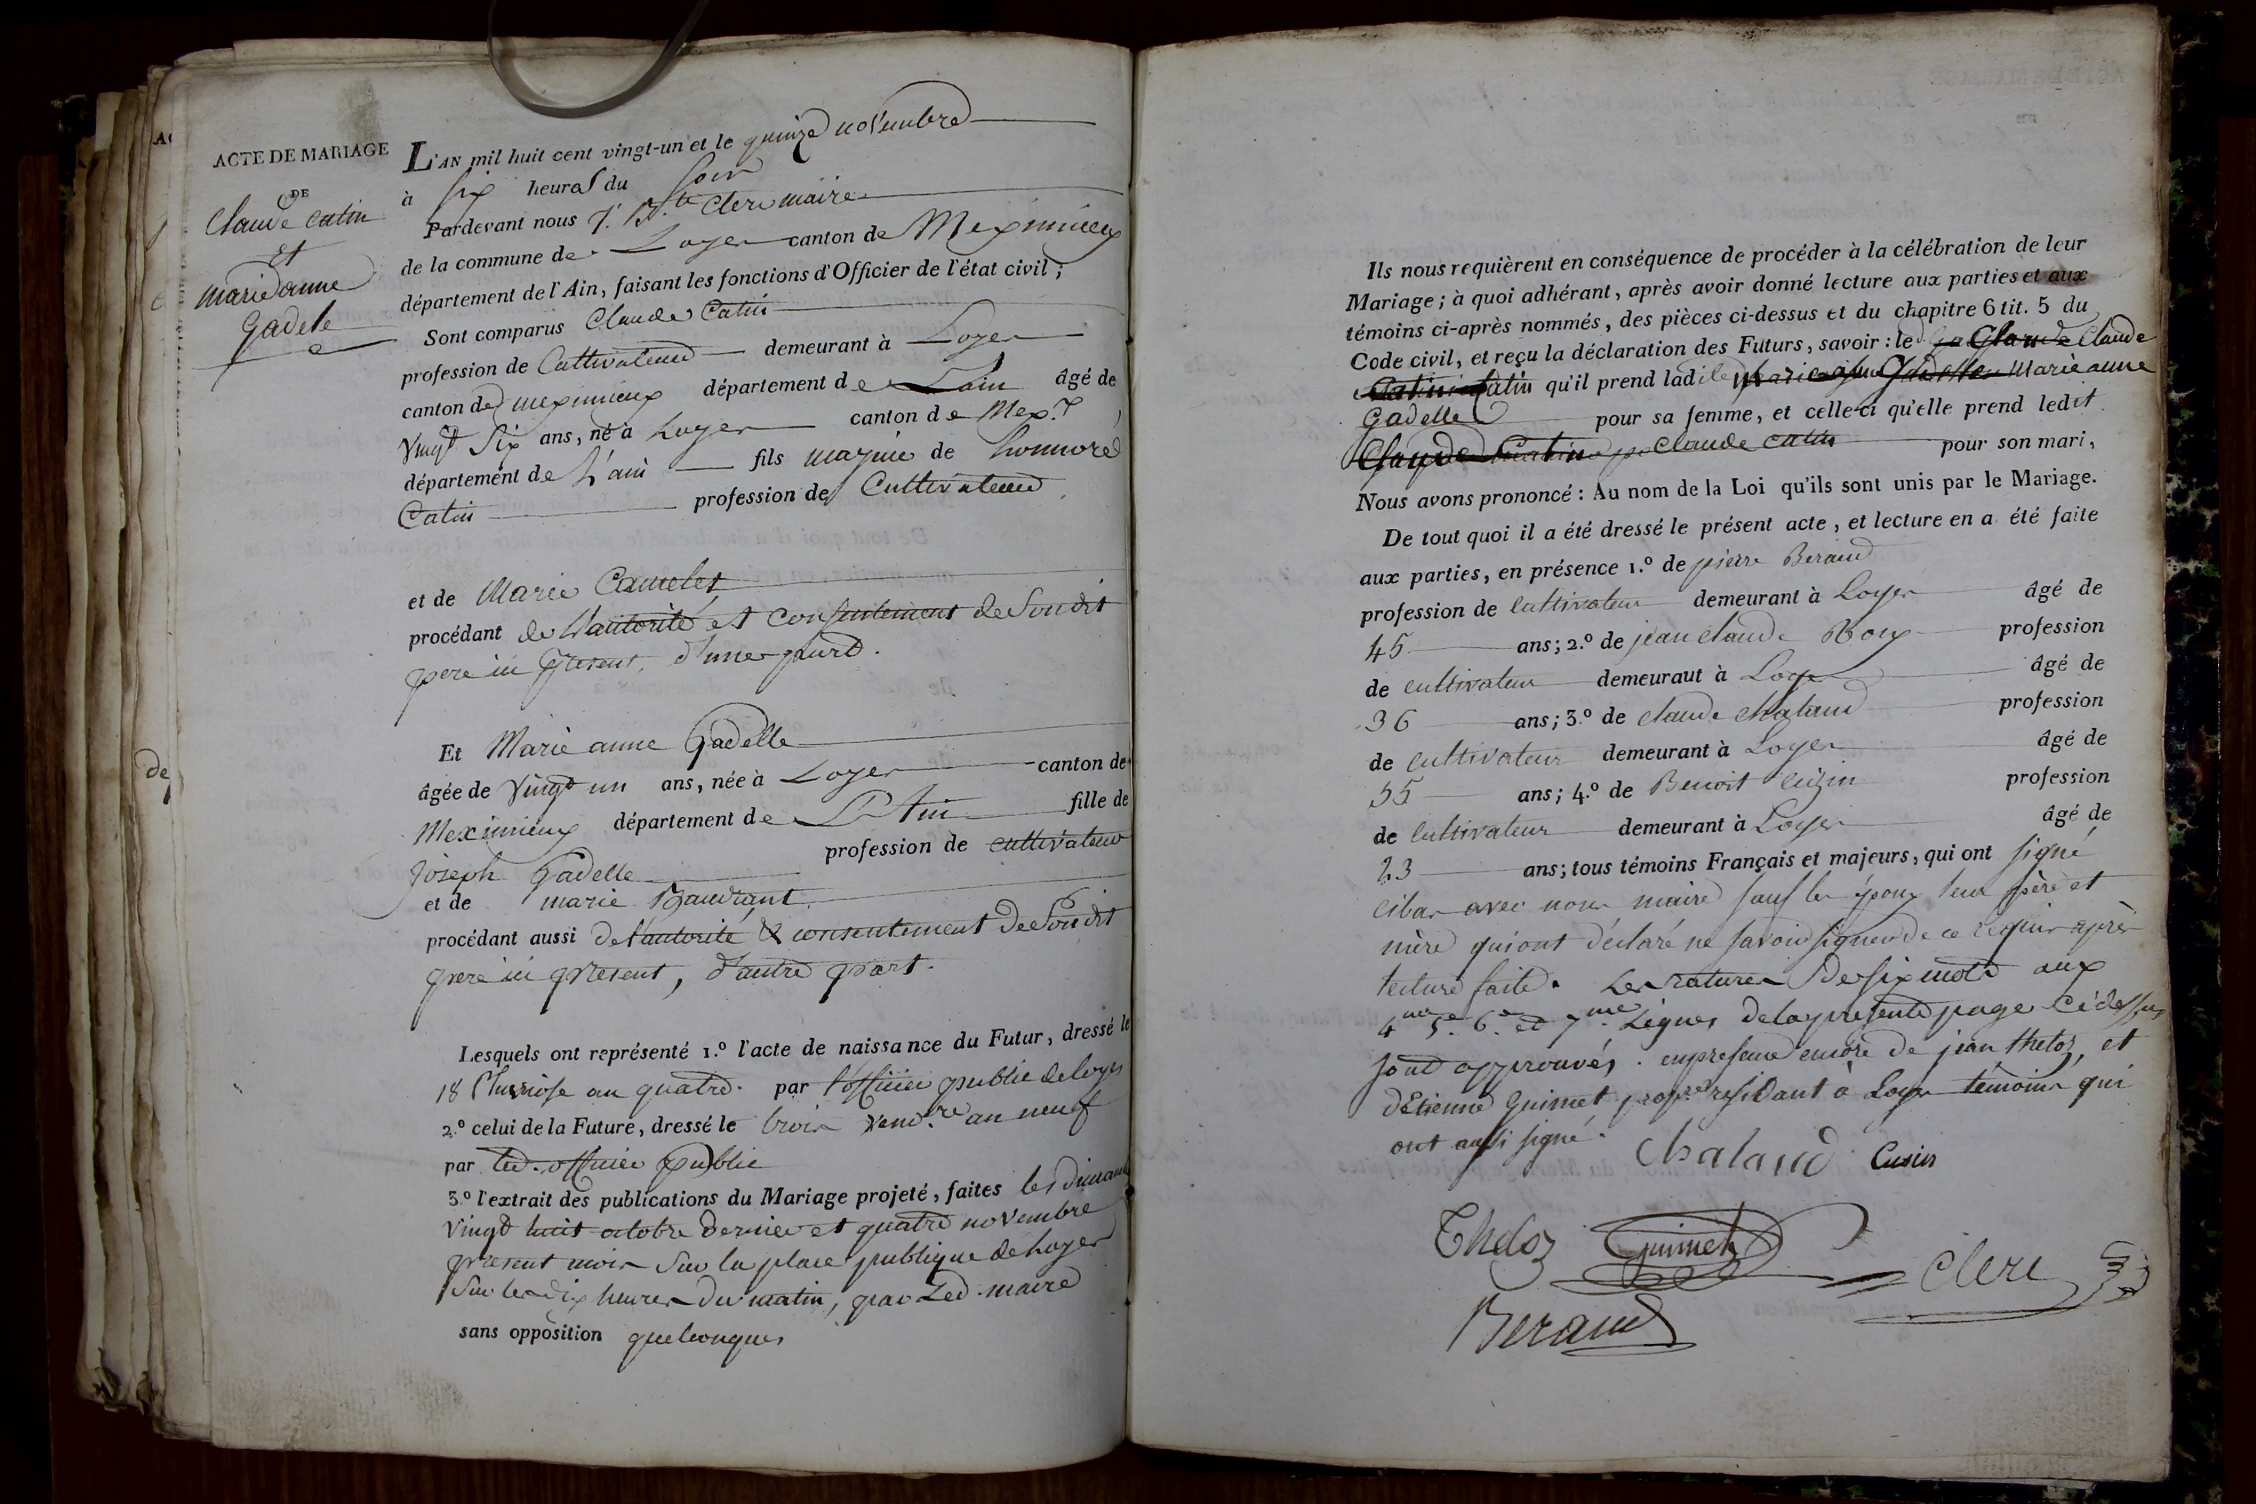 ACTE DE MARIAGE
DE
Claude Catin
et
marie anne
Gadele
L'AN mil huit cent vingt-un et le quinze novembre
à six heures du soir
Pardevant nous J. B.te Clerc maire
de la commune de Loyes canton de Meximieux
département de l'Ain, faisant les fonctions d'Officier de l'état civil;
Sont comparus Claude Catin
profession de Cultivateur demeurant à Loyes
canton de meximieux département de Lain âgé de
vingt Six ans, né à Loyes canton de Mex.x
département de L'ain fils majeur de honnoré
Catin profession de Cultivateur
et de Marie Camelet
procédant de L'autorité et Consentement de Sondit
pere ici present, d'une part.
Et Marie anne Gadelle
âgée de vingt un ans, née à Loyes canton de
Meximieux département de L'Ain fille de
Joseph Gadelle profession de cultivateur
et de marie Baudrant
procédant aussi de l'autorité & consentement de Sondit
pere ici present, d'autre part.
Lesquels ont représenté 1.º l'acte de naissance du Futur, dressé le
18 Pluviose an quatre. par l'officier public de loyes
2.º celui de la Future, dressé le trois vend.re an neuf
par led. officier public
3.º l'extrait des publications du Mariage projeté, faites les dimanc
vingt huit octobre dernier et quatre novembre
present mois Sur la place publique de Loyes
Sur les dix heures du matin, par Led. maire
sans opposition quelconques
Ils nous requièrent en conséquence de procéder à la célébration de leur
Mariage; à quoi adhérant, après avoir donné lecture aux parties et aux
témoins ci-après nommés, des pièces ci-dessus et du chapitre 6 tit. 5 du
Code civil, et reçu la déclaration des Futurs, savoir: led Claude Claude
Catin Catin qu'il prend ladite Marie anne Gadelle Marie anne
Gadelle pour sa femme, et celle-ci qu'elle prend ledit
Claude Catin Claude Catin pour son mari,
Nous avons prononcé: Au nom de la Loi qu'ils sont unis par le Mariage.
De tout quoi il a été dressé le présent acte, et lecture en a été faite
aux parties, en présence 1.º de pierre Beraud
profession de cultivateur demeurant à Loyes âgé de
45 ans; 2.º de jean claude Roux profession
de cultivateur demeuraut à Loyes âgé de
36 ans; 3.º de claude chaland profession
de cultivateur demeurant à Loyes âgé de
55 ans; 4.º de Benoit cuzin profession
de cultivateur demeurant à Loyes âgé de
23 ans; tous témoins Français et majeurs, qui ont signé
avec nous maire sauf les époux leur père et
mère qui ont déclaré ne savoir signer de ce requis après
lecture faite. Les ratures de six mots aux
4me 5e. 6e. et 7me. Lignes de la presente page ci dessus
sont approuvés. en presence encore de jean theloz, et
d'Etienne Guimet prop.re residant à Loyes témoins qui
ont aussi signé.
Chaland Cusin
Theloz Guimet Clerc
Beraud